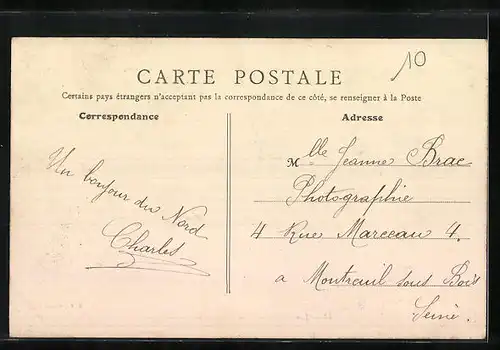 10
CARTE POSTALE
Certains pays étrangers n'acceptant pas la correspondance de ce côté, se renseigner à la Poste
Correspondance
Un bonjour du Nord
Charles
Adresse
Mlle Jeanne Brac
Photographie
4 Rue Marceau 4.
a Montreuil sous Bois
Seine.